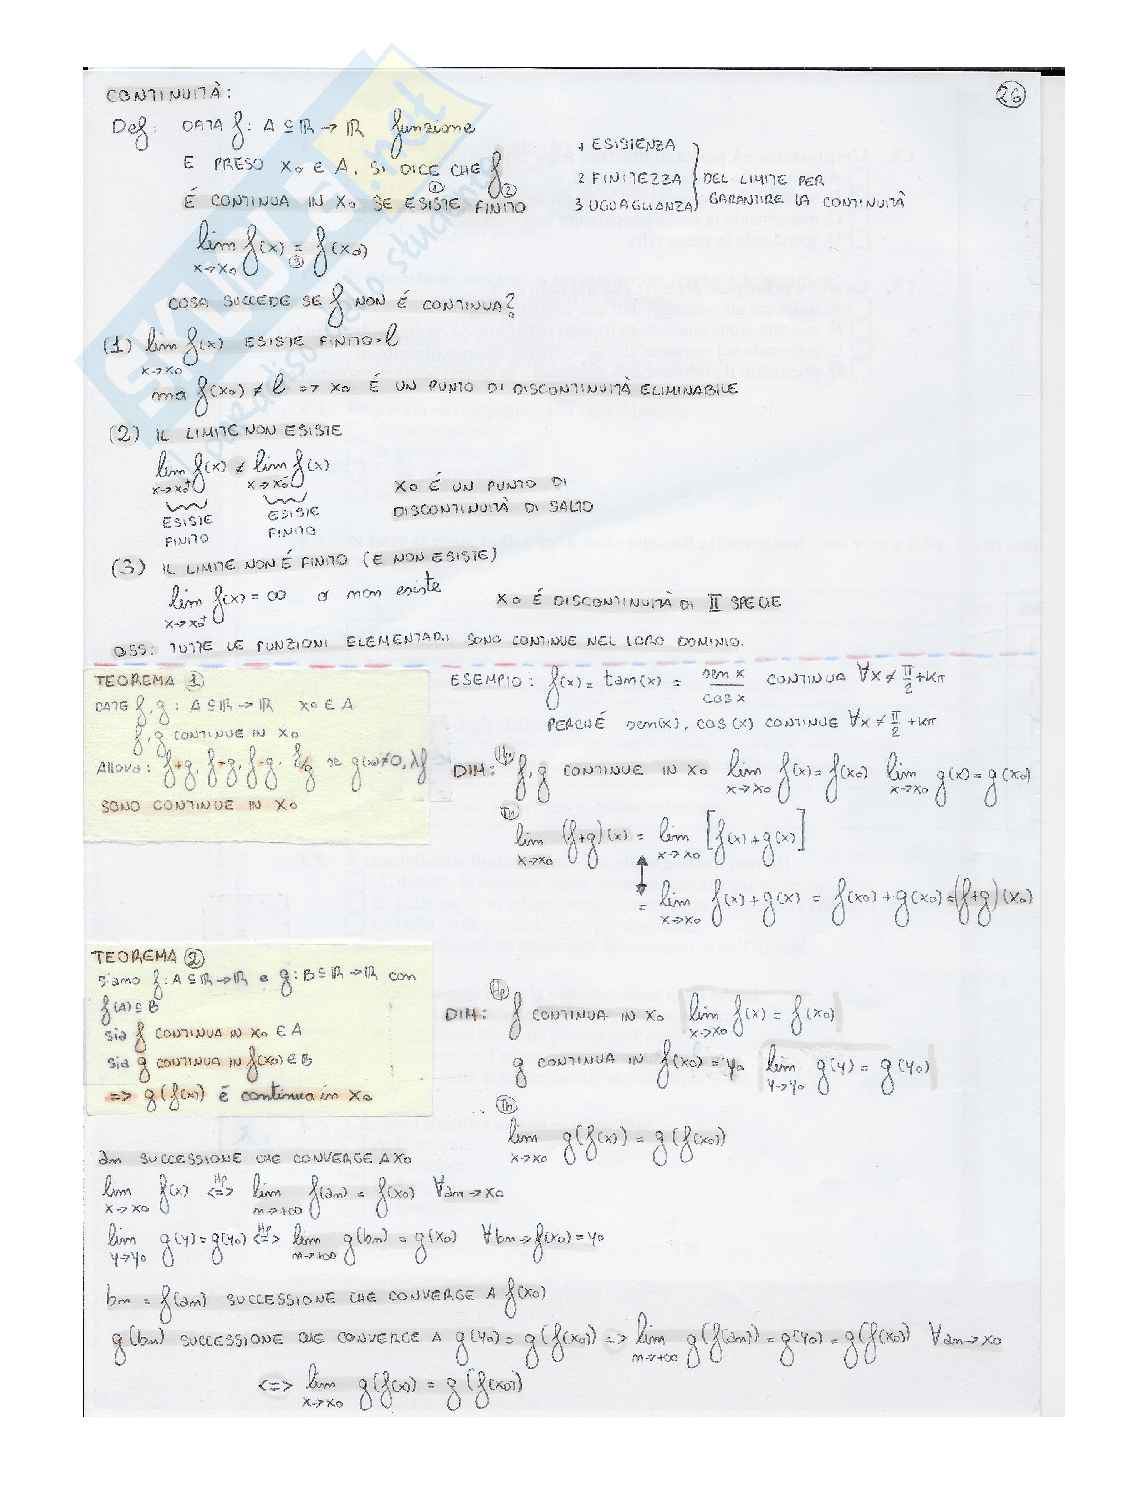 26
CONTINUITÀ:
Def: DATA f: A ⊆ ℝ → ℝ funzione
E PRESO x₀ ∈ A, SI DICE CHE f
È CONTINUA IN x₀ SE ESISTE ① FINITO ②
lim x→x₀ f(x) =③ f(x₀)
1 ESISTENZA
2 FINITEZZA } DEL LIMITE PER
3 UGUAGLIANZA GARANTIRE LA CONTINUITÀ
COSA SUCCEDE SE f NON É CONTINUA?
(1) lim x→x₀ f(x) ESISTE FINITO = l
ma f(x₀) ≠ l => x₀ É UN PUNTO DI DISCONTINUITÀ ELIMINABILE
(2) IL LIMITE NON ESISTE
lim x→x₀⁺ f(x) ≠ lim x→x₀⁻ f(x)
ESISTE FINITO ESISTE FINITO
x₀ É UN PUNTO DI
DISCONTINUITÀ DI SALTO
(3) IL LIMITE NON É FINITO (E NON ESISTE)
lim x→x₀⁺ f(x) = ∞ o non esiste x₀ É DISCONTINUITÀ DI II SPECIE
OSS: TUTTE LE FUNZIONI ELEMENTARI SONO CONTINUE NEL LORO DOMINIO.
TEOREMA ①
DATE f, g: A ⊆ ℝ → ℝ x₀ ∈ A
f, g CONTINUE IN x₀
Allora: f+g, f-g, f·g, f/g se g(x₀)≠0, λf
SONO CONTINUE IN x₀
ESEMPIO: f(x) = tan(x) = sen x / cos x CONTINUA ∀x ≠ π/2 + kπ
PERCHÉ sen(x), cos(x) CONTINUE ∀x ≠ π/2 + kπ
DIM: Hp f, g CONTINUE IN x₀ lim x→x₀ f(x) = f(x₀) lim x→x₀ g(x) = g(x₀)
Th
lim x→x₀ (f+g)(x) = lim x→x₀ [f(x) + g(x)]
= lim x→x₀ f(x) + g(x) = f(x₀) + g(x₀) = (f+g)(x₀)
TEOREMA ②
Siano f: A ⊆ ℝ → ℝ e g: B ⊆ ℝ → ℝ con
f(A) ⊆ B
sia f CONTINUA IN x₀ ∈ A
sia g CONTINUA IN f(x₀) ∈ B
=> g(f(x)) é continua in x₀
Hp
DIM: f CONTINUA IN x₀ lim x→x₀ f(x) = f(x₀)
g CONTINUA IN f(x₀) = y₀ lim y→y₀ g(y) = g(y₀)
Th
lim x→x₀ g(f(x)) = g(f(x₀))
an SUCCESSIONE CHE CONVERGE A x₀
lim x→x₀ f(x) <=> Hp lim n→+∞ f(an) = f(x₀) ∀an→x₀
lim y→y₀ g(y) = g(y₀) <=> Hp lim n→+∞ g(bn) = g(x₀) ∀bn→f(x₀) = y₀
bn = f(an) SUCCESSIONE CHE CONVERGE A f(x₀)
g(bn) SUCCESSIONE CHE CONVERGE A g(y₀) = g(f(x₀)) => lim n→+∞ g(f(an)) = g(y₀) = g(f(x₀)) ∀an→x₀
<=> lim x→x₀ g(f(x)) = g(f(x₀))